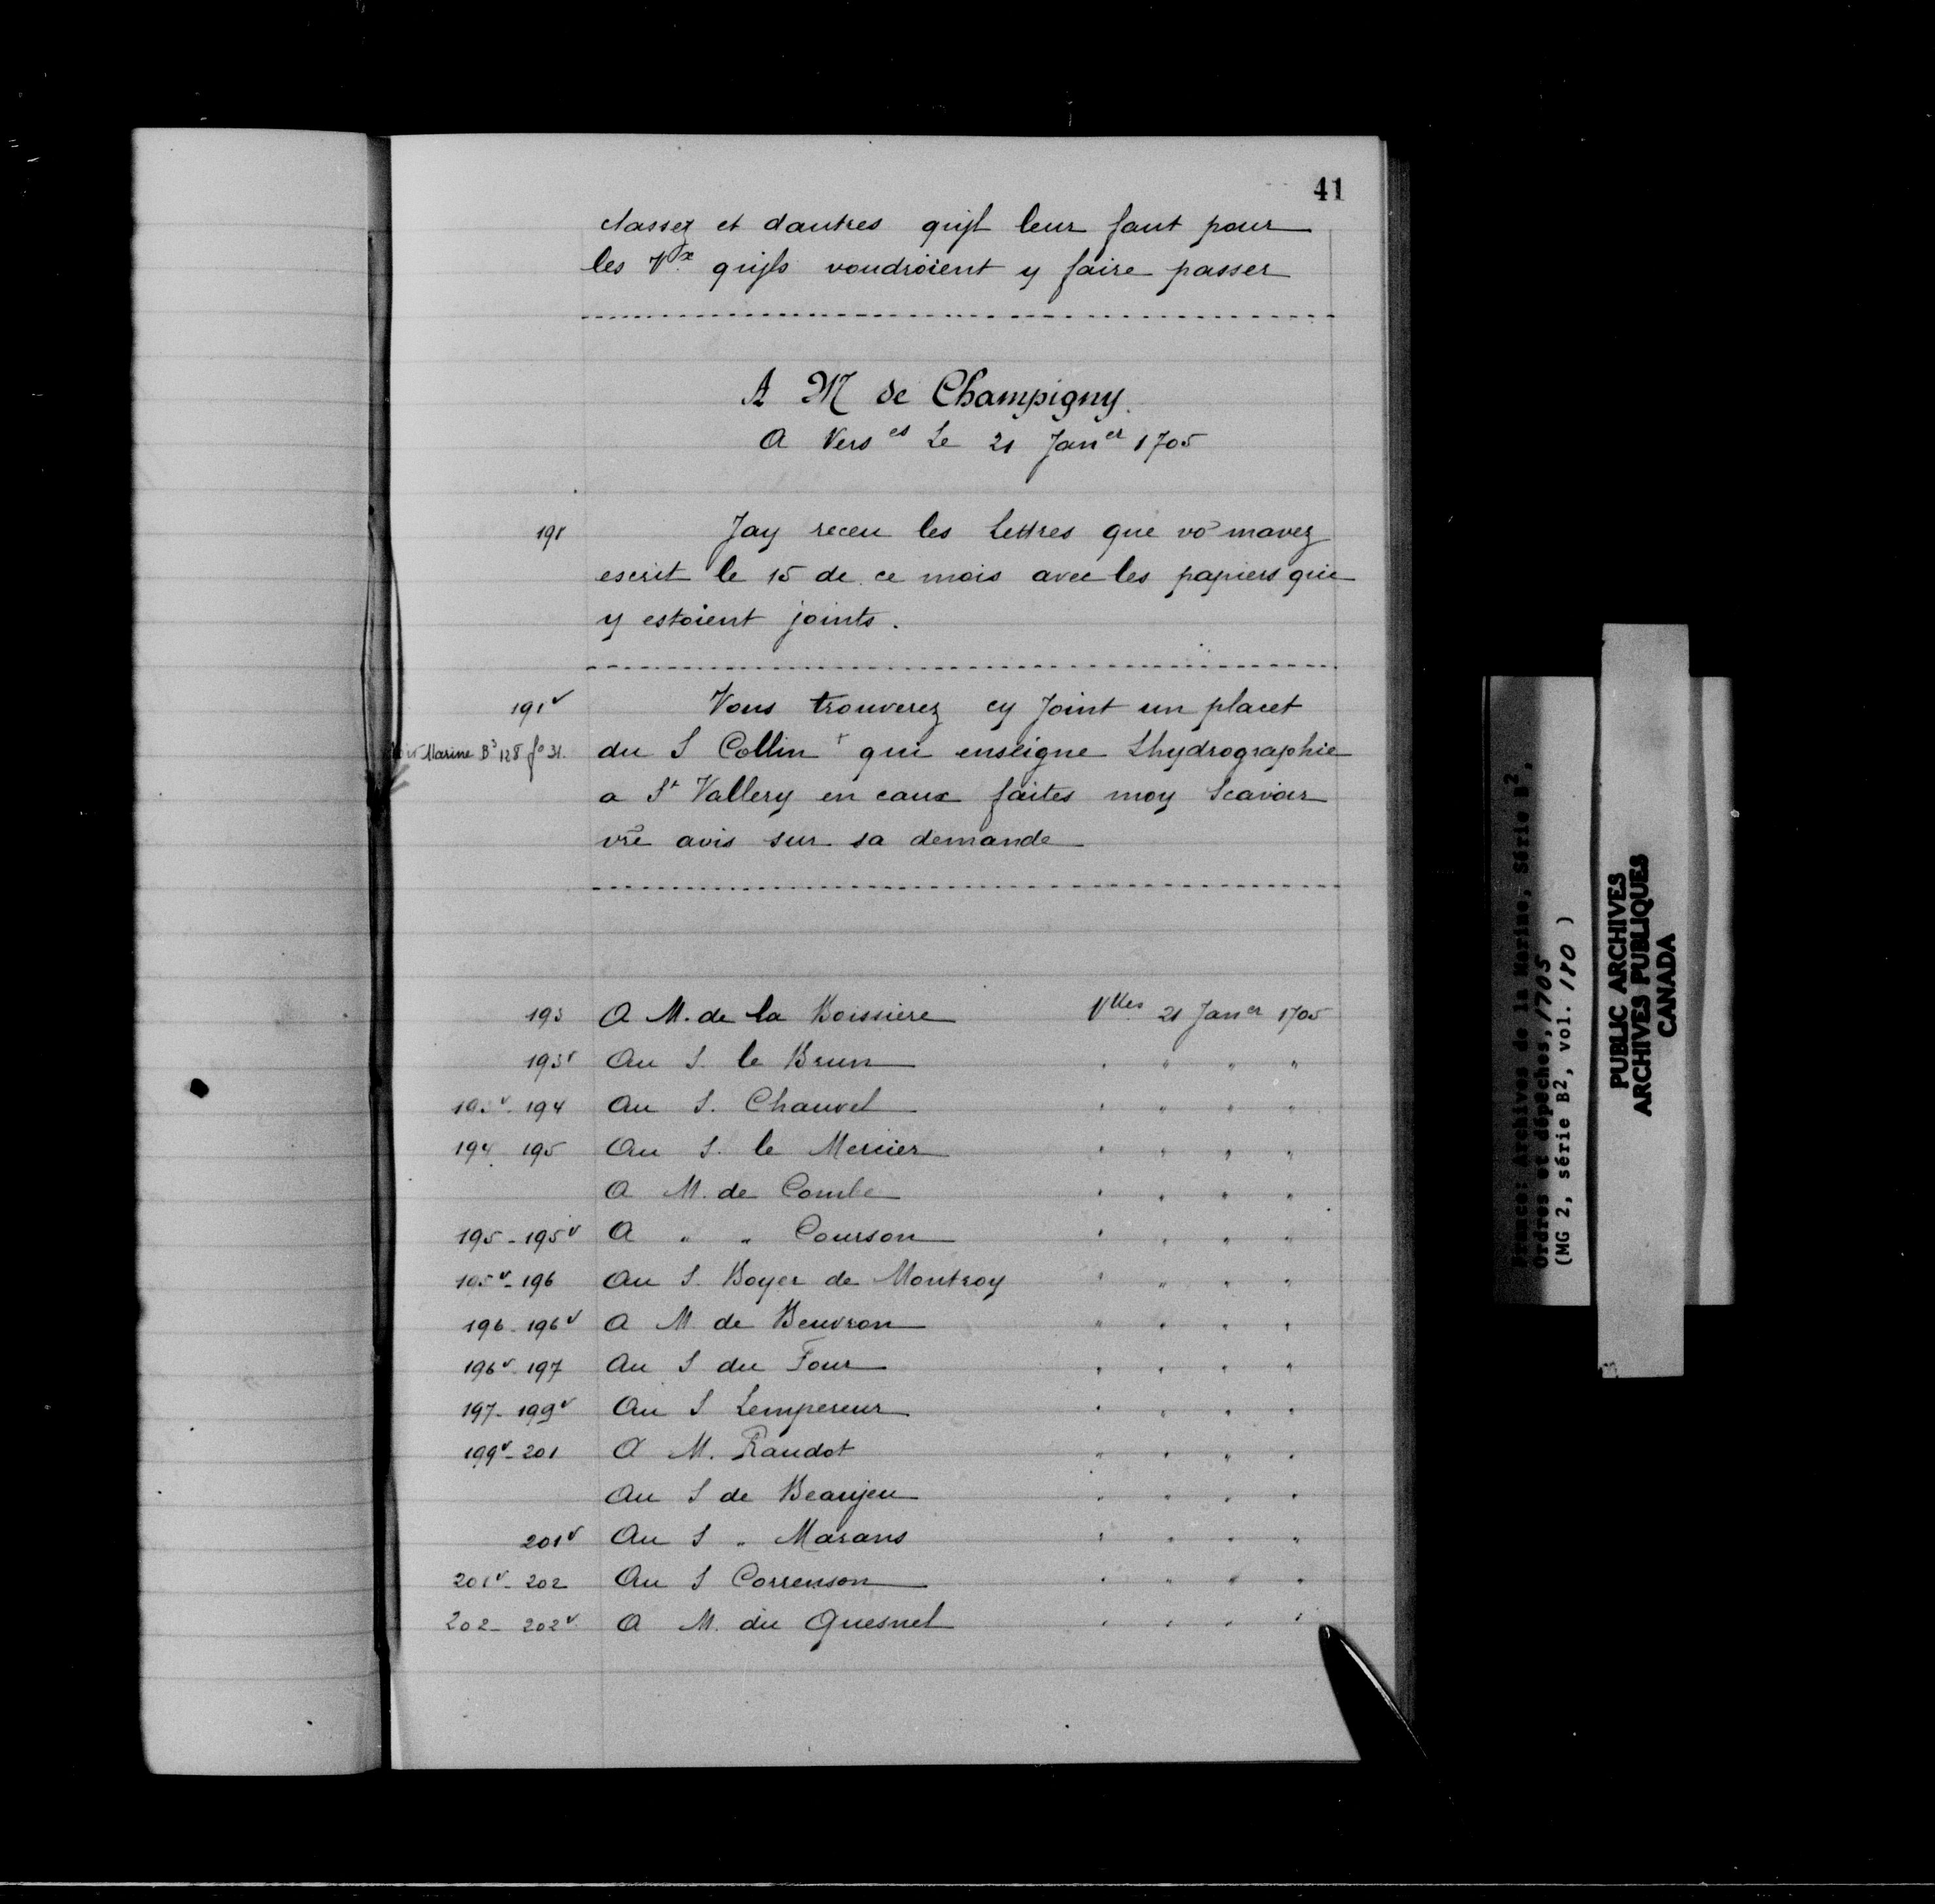 41
classez et dautres quil leur faut pour
les Vx quils voudroient y faire passer
A M de Champigny.
A Vers es Le 21 Janer 1705
191 Jay receu les Lettres que vo mavez
escrit le 15 de ce mois avec les papiers qui
y estoient joints.
191v Vous trouverez cy Joint un placet
Marine B3 128 fo 31. du S Collin + qui enseigne Lhydrographie
a St Vallery en caux faites moy Scavoir
vre avis sur sa demande
193 A M. de la Boissiere Vlles 21 Janer 1705
193v Au S. le Brun " " " "
193v - 194 Au S. Chauvel " " " "
194 - 195 Au S. le Mercier " " " "
A M. de Combe " " " "
195 - 195v A " " Courson " " " "
195v - 196 Au S. Boyer de Montroy " " " "
196 - 196v A M. de Beuvron " " " "
196v - 197 Au S du Four " " " "
197 - 199v Au S Lempereur " " " "
199v - 201 A M. Raudot " " " "
Au S de Beaujeu " " " "
201v Au S " Marans " " " "
201v - 202 Au S Correnson " " " "
202 - 202v A M. du Quesnel " " " "
France: Archives de la Marine, Série B2,
Ordres et dépêches, 1705
(MG 2, série B2, vol. 180 )
PUBLIC ARCHIVES
ARCHIVES PUBLIQUES
CANADA